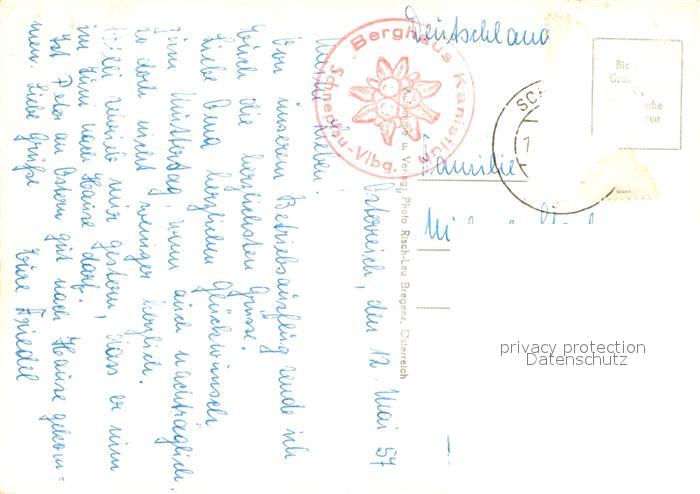 Österreich, den 12. Mai 57
Meine Lieben!
Von unserem Betriebsausflug sende ich
Euch die herzlichsten Grüsse.
Liebe Oma herzlichen Glückwunsch
zum Muttertag, wenn auch nachträglich,
so doch nicht weniger herzlich.
Willi schrieb mir gestern, dass er nun
im Juni nach Hause darf.
Ist Peter an Ostern gut nach Hause gekom=
men. Liebe Grüße
Eure Friedel
Berghaus Kanisfluh
Schnepfau-Vlbg.
u. Verlag: Photo Risch-Lau Bregenz, Österreich
Deutschland
Familie
SC
1
Bis
privacy protection
Datenschutz